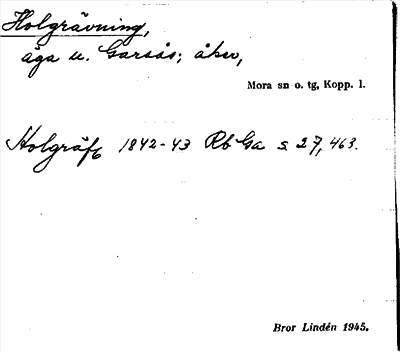 Holgrävning,
äga u. Garsås; åker,
Mora sn o. tg, Kopp. l.
Holgräfs 1842-43 Rb Ga s. 27, 463.
Bror Lindén 1945.